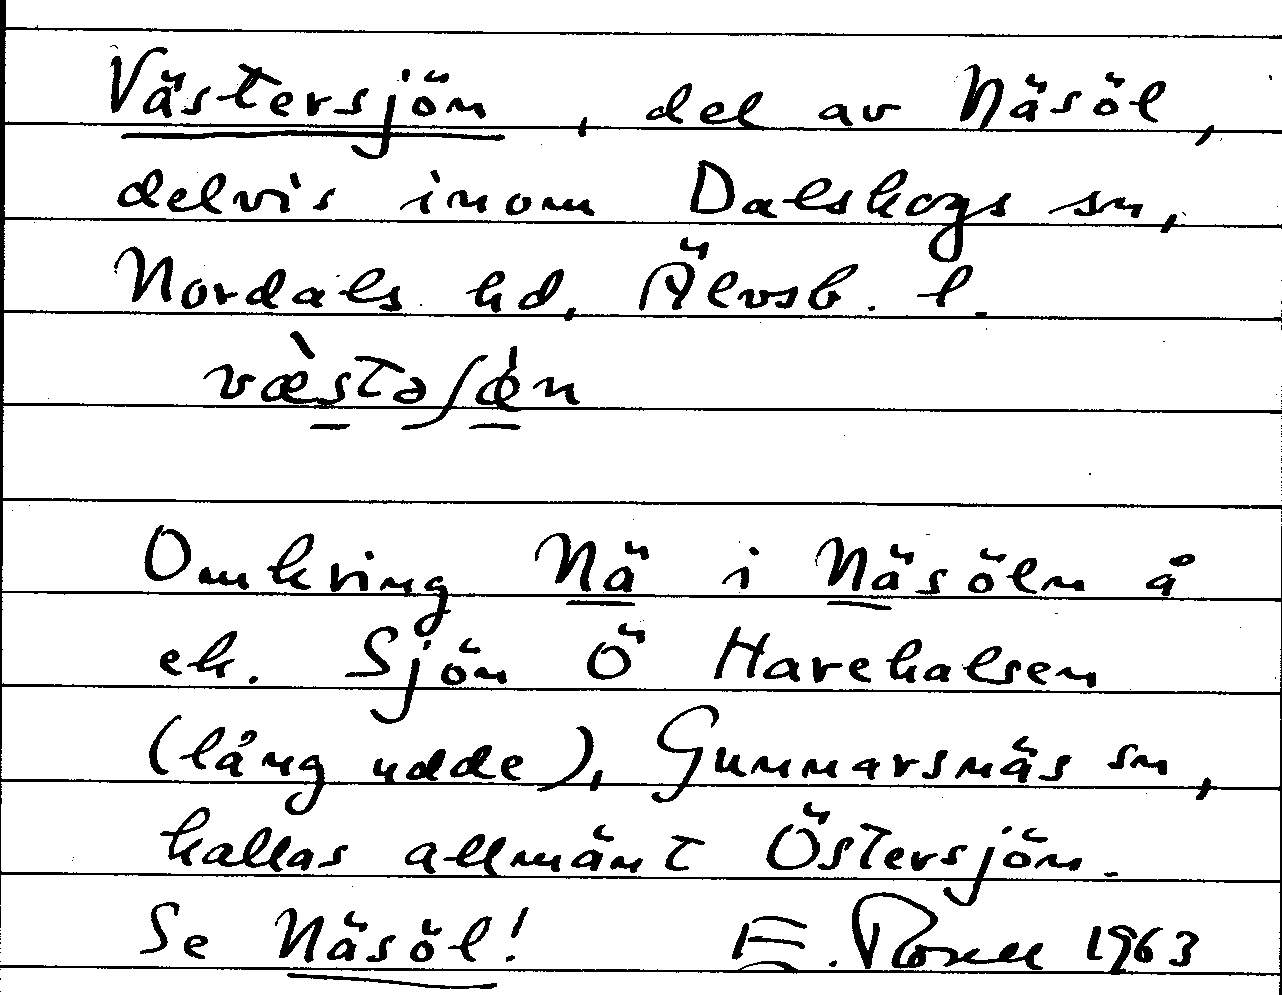 Västersjön, del av Näsöl,
delvis inom Dalskogs sn,
Nordals hd, Älvsb. l.
væ̀stəʃǿn
Omkring Nä i Näsöln å
ek. Sjön Ö Harekalsen
(lång udde), Gunnarsnäs sn,
kallas allmänt Östersjön.
Se Näsöl! E. 1963